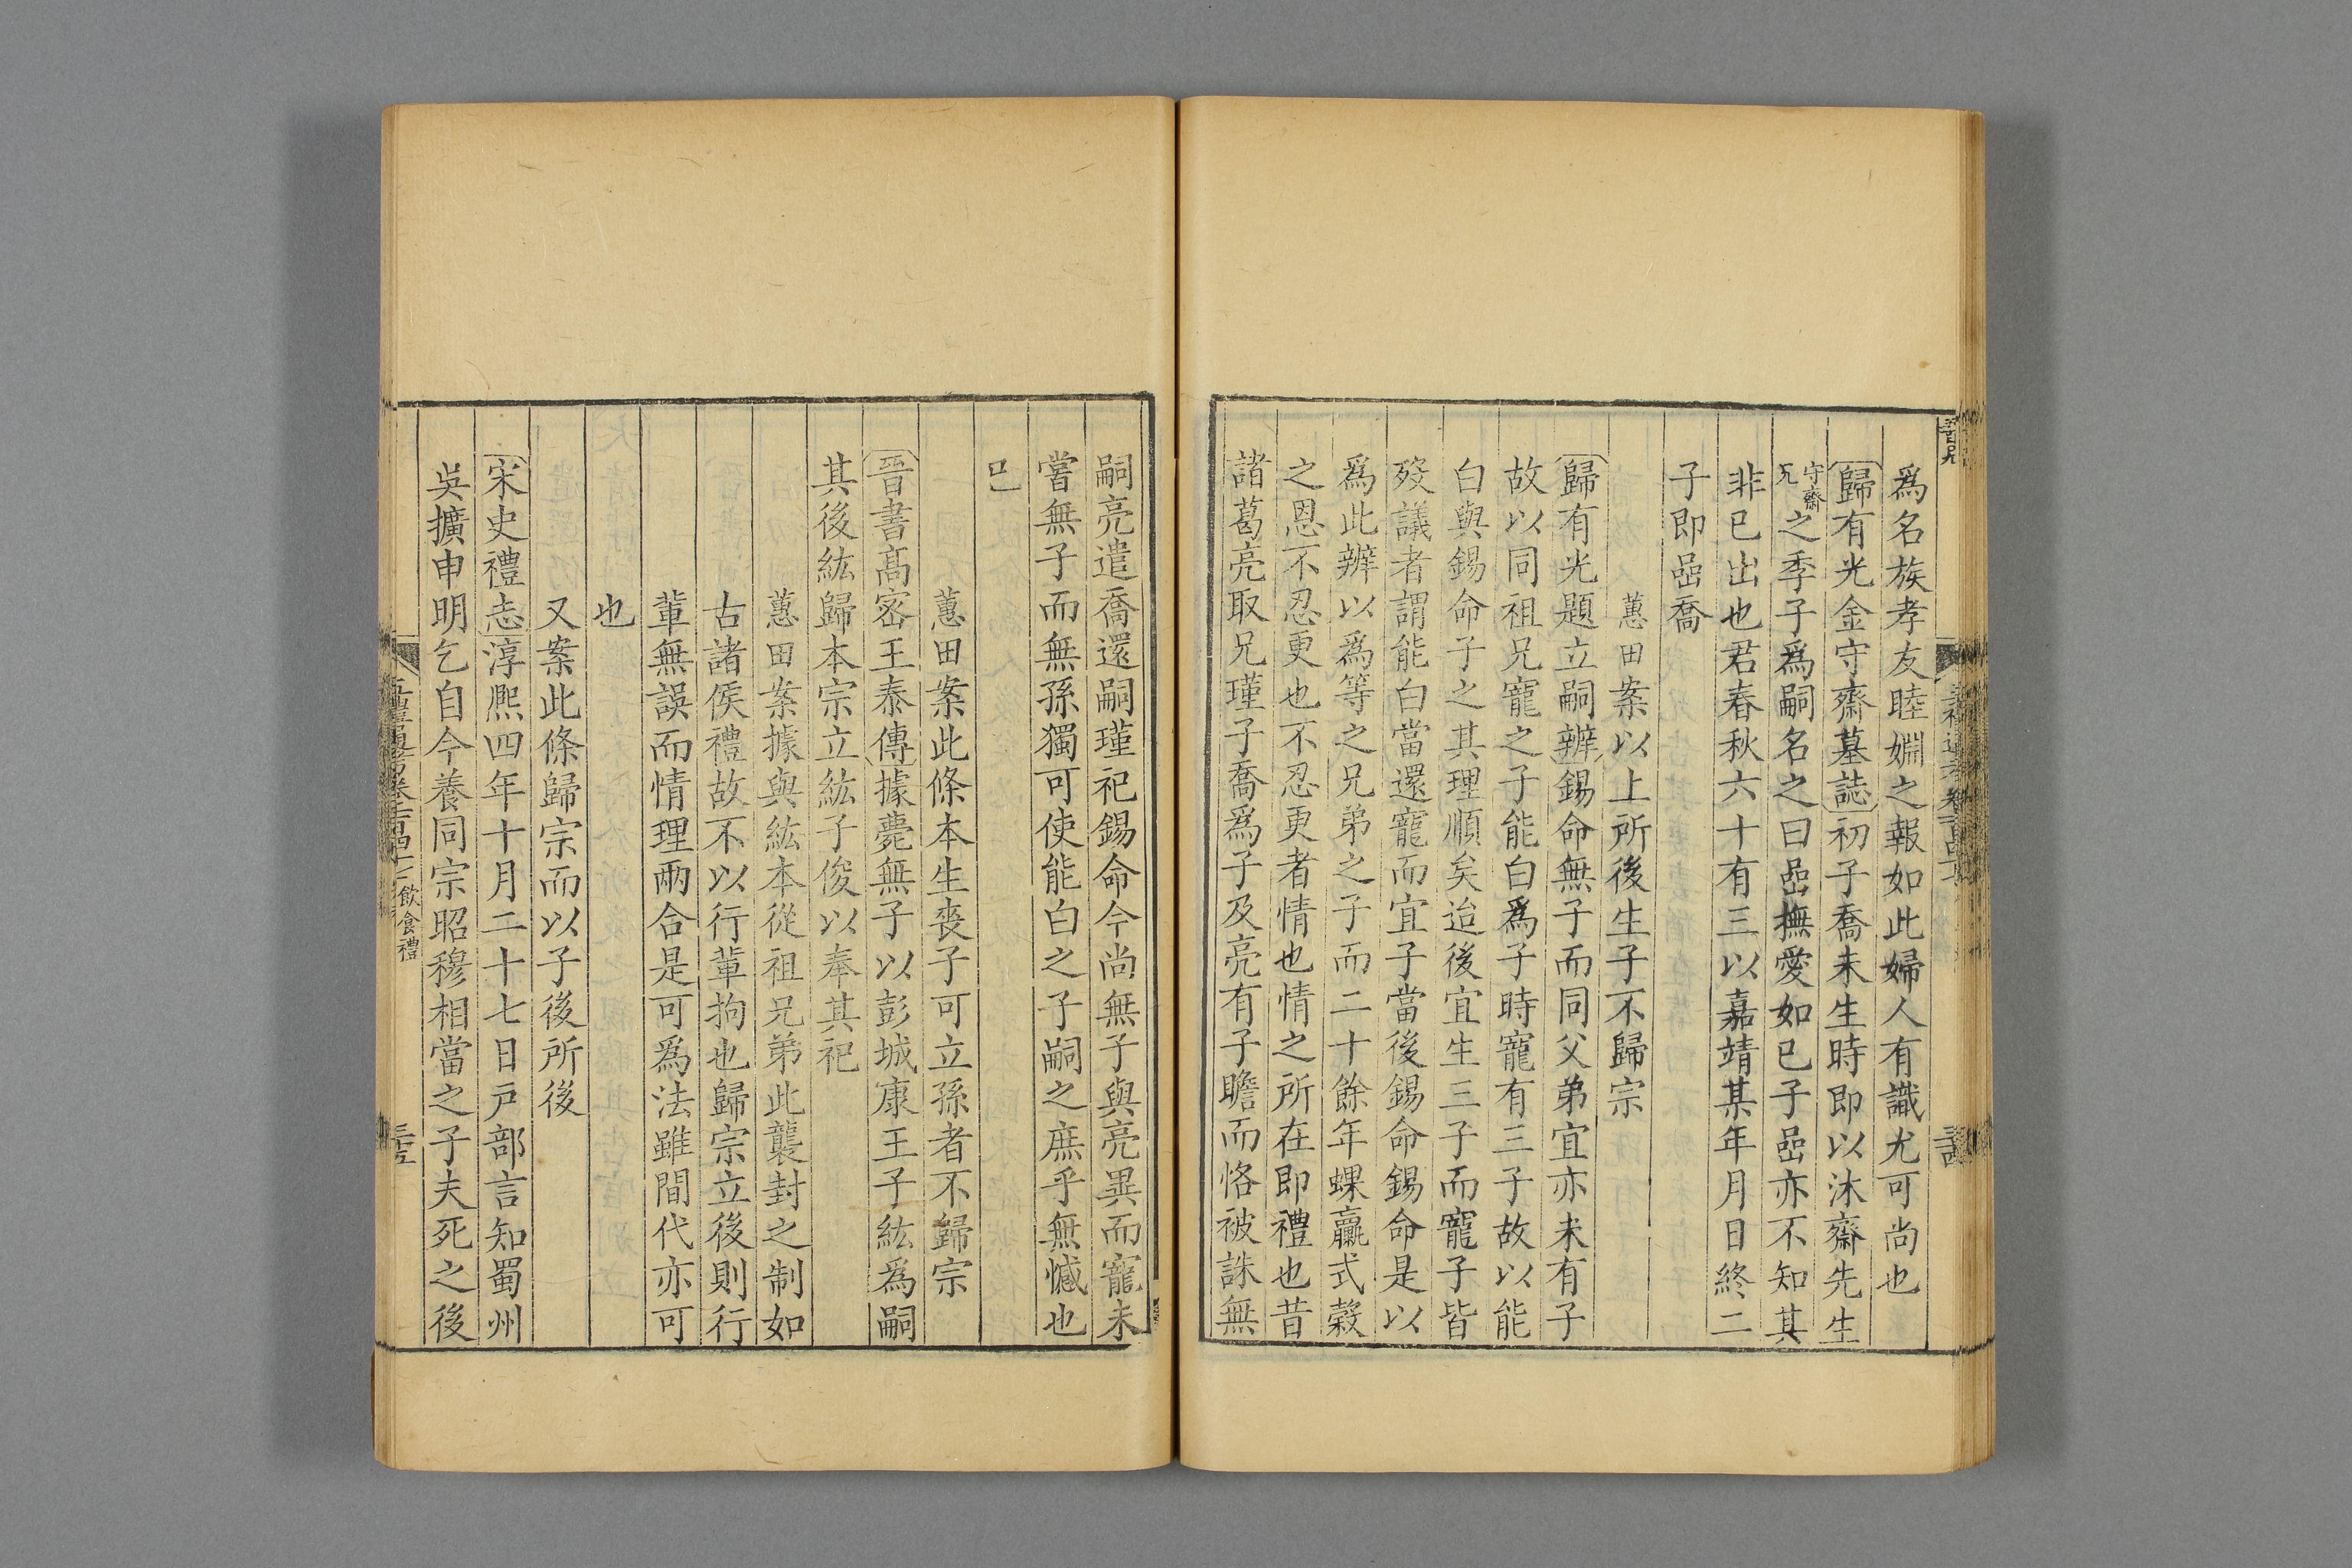 爲名族孝友睦婣之報如此婦人有識尤可尚也
歸有光金守齋墓誌初子喬未生時即以沐齋先生
守齋兄之季子爲嗣名之曰嵒撫愛如已子嵒亦不知其
非已出也君春秋六十有三以嘉靖某年月日終二
子即嵒喬
蕙田案以上所後生子不歸宗
歸有光題立嗣辨錫命無子而同父弟宜亦未有子
故以同祖兄寵之子能白爲子時寵有三子故以能
白與錫命子之其理順矣迨後宜生三子而寵子皆
歿議者謂能白當還寵而宜子當後錫命錫命是以
爲此辨以爲等之兄弟之子而二十餘年蜾蠃式榖
之恩不忍更也不忍更者情也情之所在即禮也昔
諸葛亮取兄瑾子喬爲子及亮有子瞻而恪被誅無
嗣亮遣喬還嗣瑾祀錫命今尚無子與亮異而寵未
嘗無子而無孫獨可使能白之子嗣之庶乎無憾也
巳
蕙田案此條本生喪子可立孫者不歸宗
晉書高密王泰傳據薨無子以彭城康王子紘爲嗣
其後紘歸本宗立紘子俊以奉其祀
蕙田案據與紘本從祖兄弟此襲封之制如
古諸侯禮故不以行輩拘也歸宗立後則行
輩無誤而情理兩合是可爲法雖間代亦可
也
又案此條歸宗而以子後所後
宋史禮志淳熙四年十月二十七日戸部言知蜀州
吳擴申明乞自今養同宗昭穆相當之子夫死之後
飲食禮